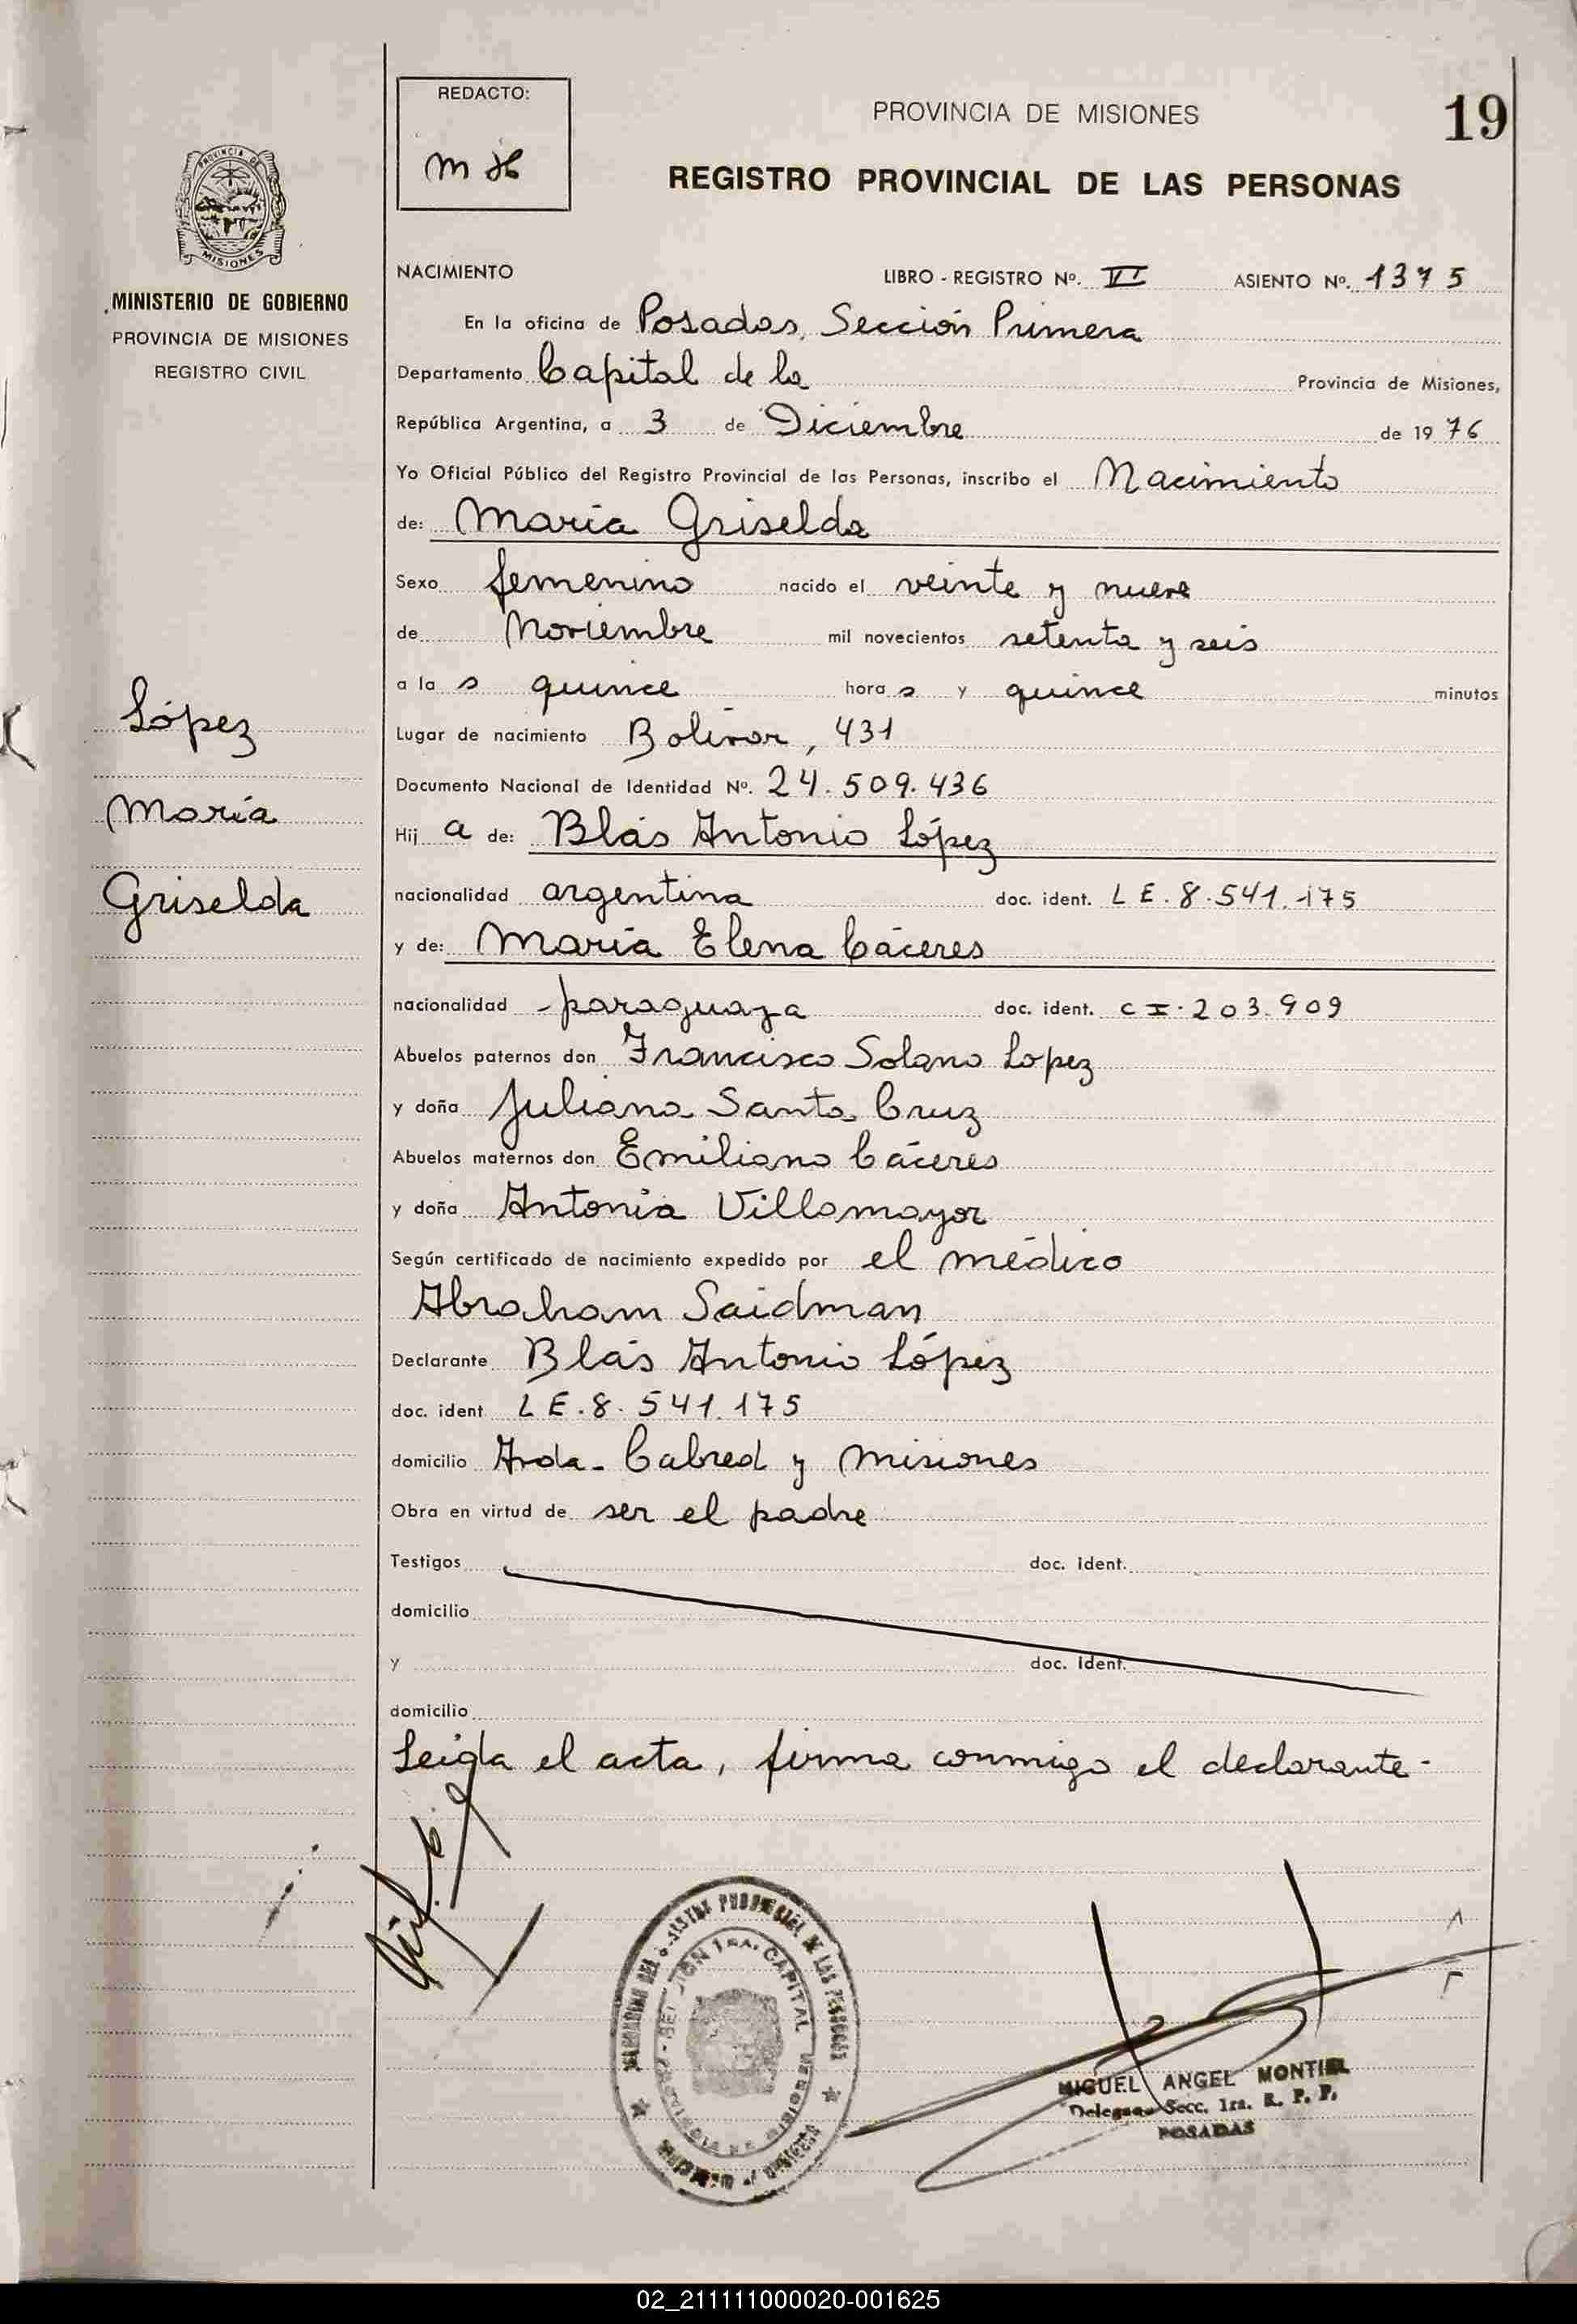 REDACTO:
PROVINCIA DE MISIONES
19
REGISTRO PROVINCIAL DE LAS PERSONAS
PROVINCIA DE
MISIONES
MINISTERIO DE GOBIERNO
PROVINCIA DE MISIONES
REGISTRO CIVIL
NACIMIENTO LIBRO - REGISTRO Nº. VI ASIENTO Nº. 1375
En la oficina de Posadas, Sección Primera
Departamento Capital de la Provincia de Misiones,
República Argentina, a 3 de Diciembre de 1976
Yo Oficial Público del Registro Provincial de las Personas, inscribo el Nacimiento
de: María Griselda
Sexo femenino nacido el veinte y nueve
de Noviembre mil novecientos setenta y seis
a la s quince hora s y quince minutos
López
Lugar de nacimiento Bolívar, 431
Documento Nacional de Identidad Nº. 24.509.436
María
Hij a de: Blás Antonio López
Griselda
nacionalidad argentina doc. ident. L E. 8.541.175
y de: María Elena Cáceres
nacionalidad paraguaya doc. ident. C I. 203.909
Abuelos paternos don Francisco Solano Lopez
y doña Juliana Santa Cruz
Abuelos maternos don Emiliano Cáceres
y doña Antonia Villamayor
Según certificado de nacimiento expedido por el médico
Abraham Saidman
Declarante Blás Antonio López
doc. ident L E. 8. 541.175
domicilio Avda. Cabred y Misiones
Obra en virtud de ser el padre
Testigos doc. ident.
domicilio
y doc. ident.
domicilio
Leída el acta, firma conmigo el declarante-
MIGUEL ANGEL MONTIEL
Delegado Secc. 1ra. R. P. P.
POSADAS
02_211111000020-001625